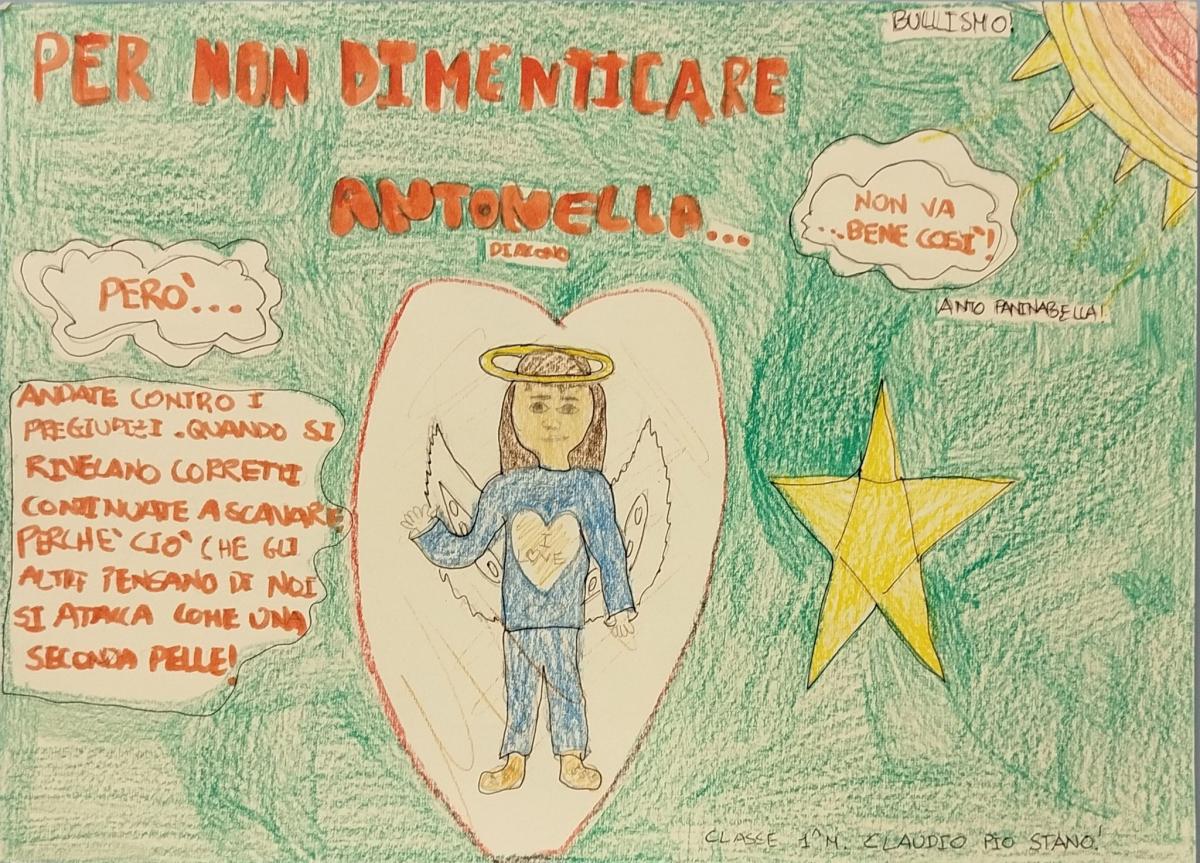 BULLISMO!
PER NON DIMENTICARE
ANTONELLA...
DIACONO
NON VA
...BENE COSI'!
ANTO PANINABELLA!
PERO'...
ANDATE CONTRO I
PREGIUDIZI. QUANDO SI
RIVELANO CORRETTI
CONTINUATE A SCAVARE
PERCHE' CIO' CHE GLI
ALTRI PENSANO DI NOI
SI ATTACCA COME UNA
SECONDA PELLE!
I
LOVE
CLASSE 1^M. CLAUDIO PIO STANO!